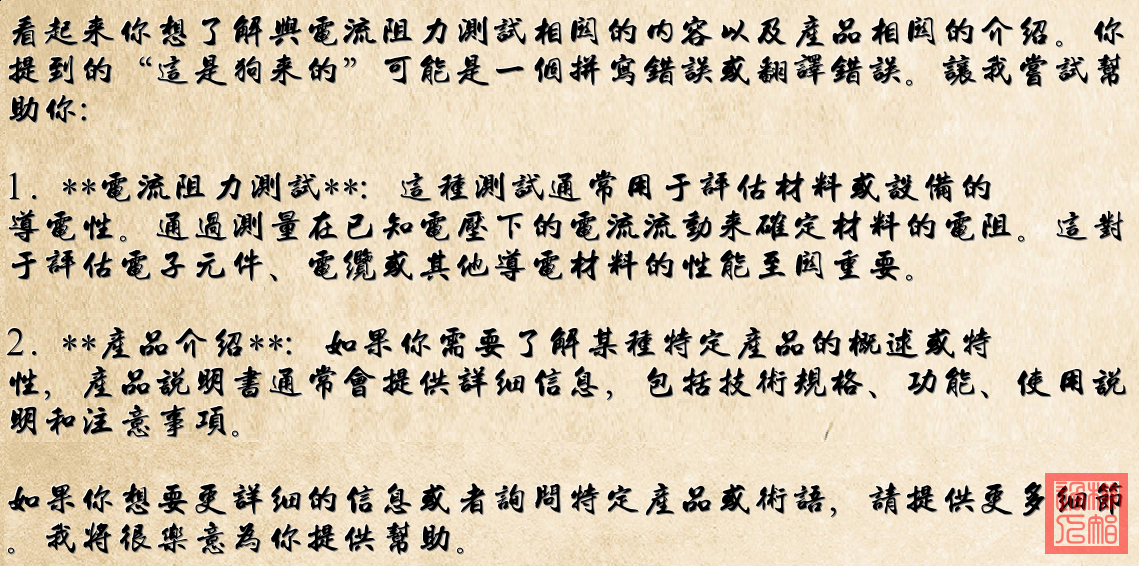 看起来你想了解與電流阻力測試相関的内容以及產品相関的介绍。你
提到的“這是狗来的”可能是一個拼寫錯誤或翻譯錯誤。讓我嘗試幫
助你：
1. **電流阻力測試**：這種測試通常用于評估材料或設備的
導電性。通過測量在已知電壓下的電流流動来確定材料的電阻。這對
于評估電子元件、電纜或其他導電材料的性能至関重要。
2. **產品介绍**：如果你需要了解某種特定產品的概述或特
性，產品説明書通常會提供詳細信息，包括技術規格、功能、使用説
明和注意事項。
如果你想要更詳細的信息或者詢問特定產品或術語，請提供更多細節
。我将很樂意為你提供幫助。